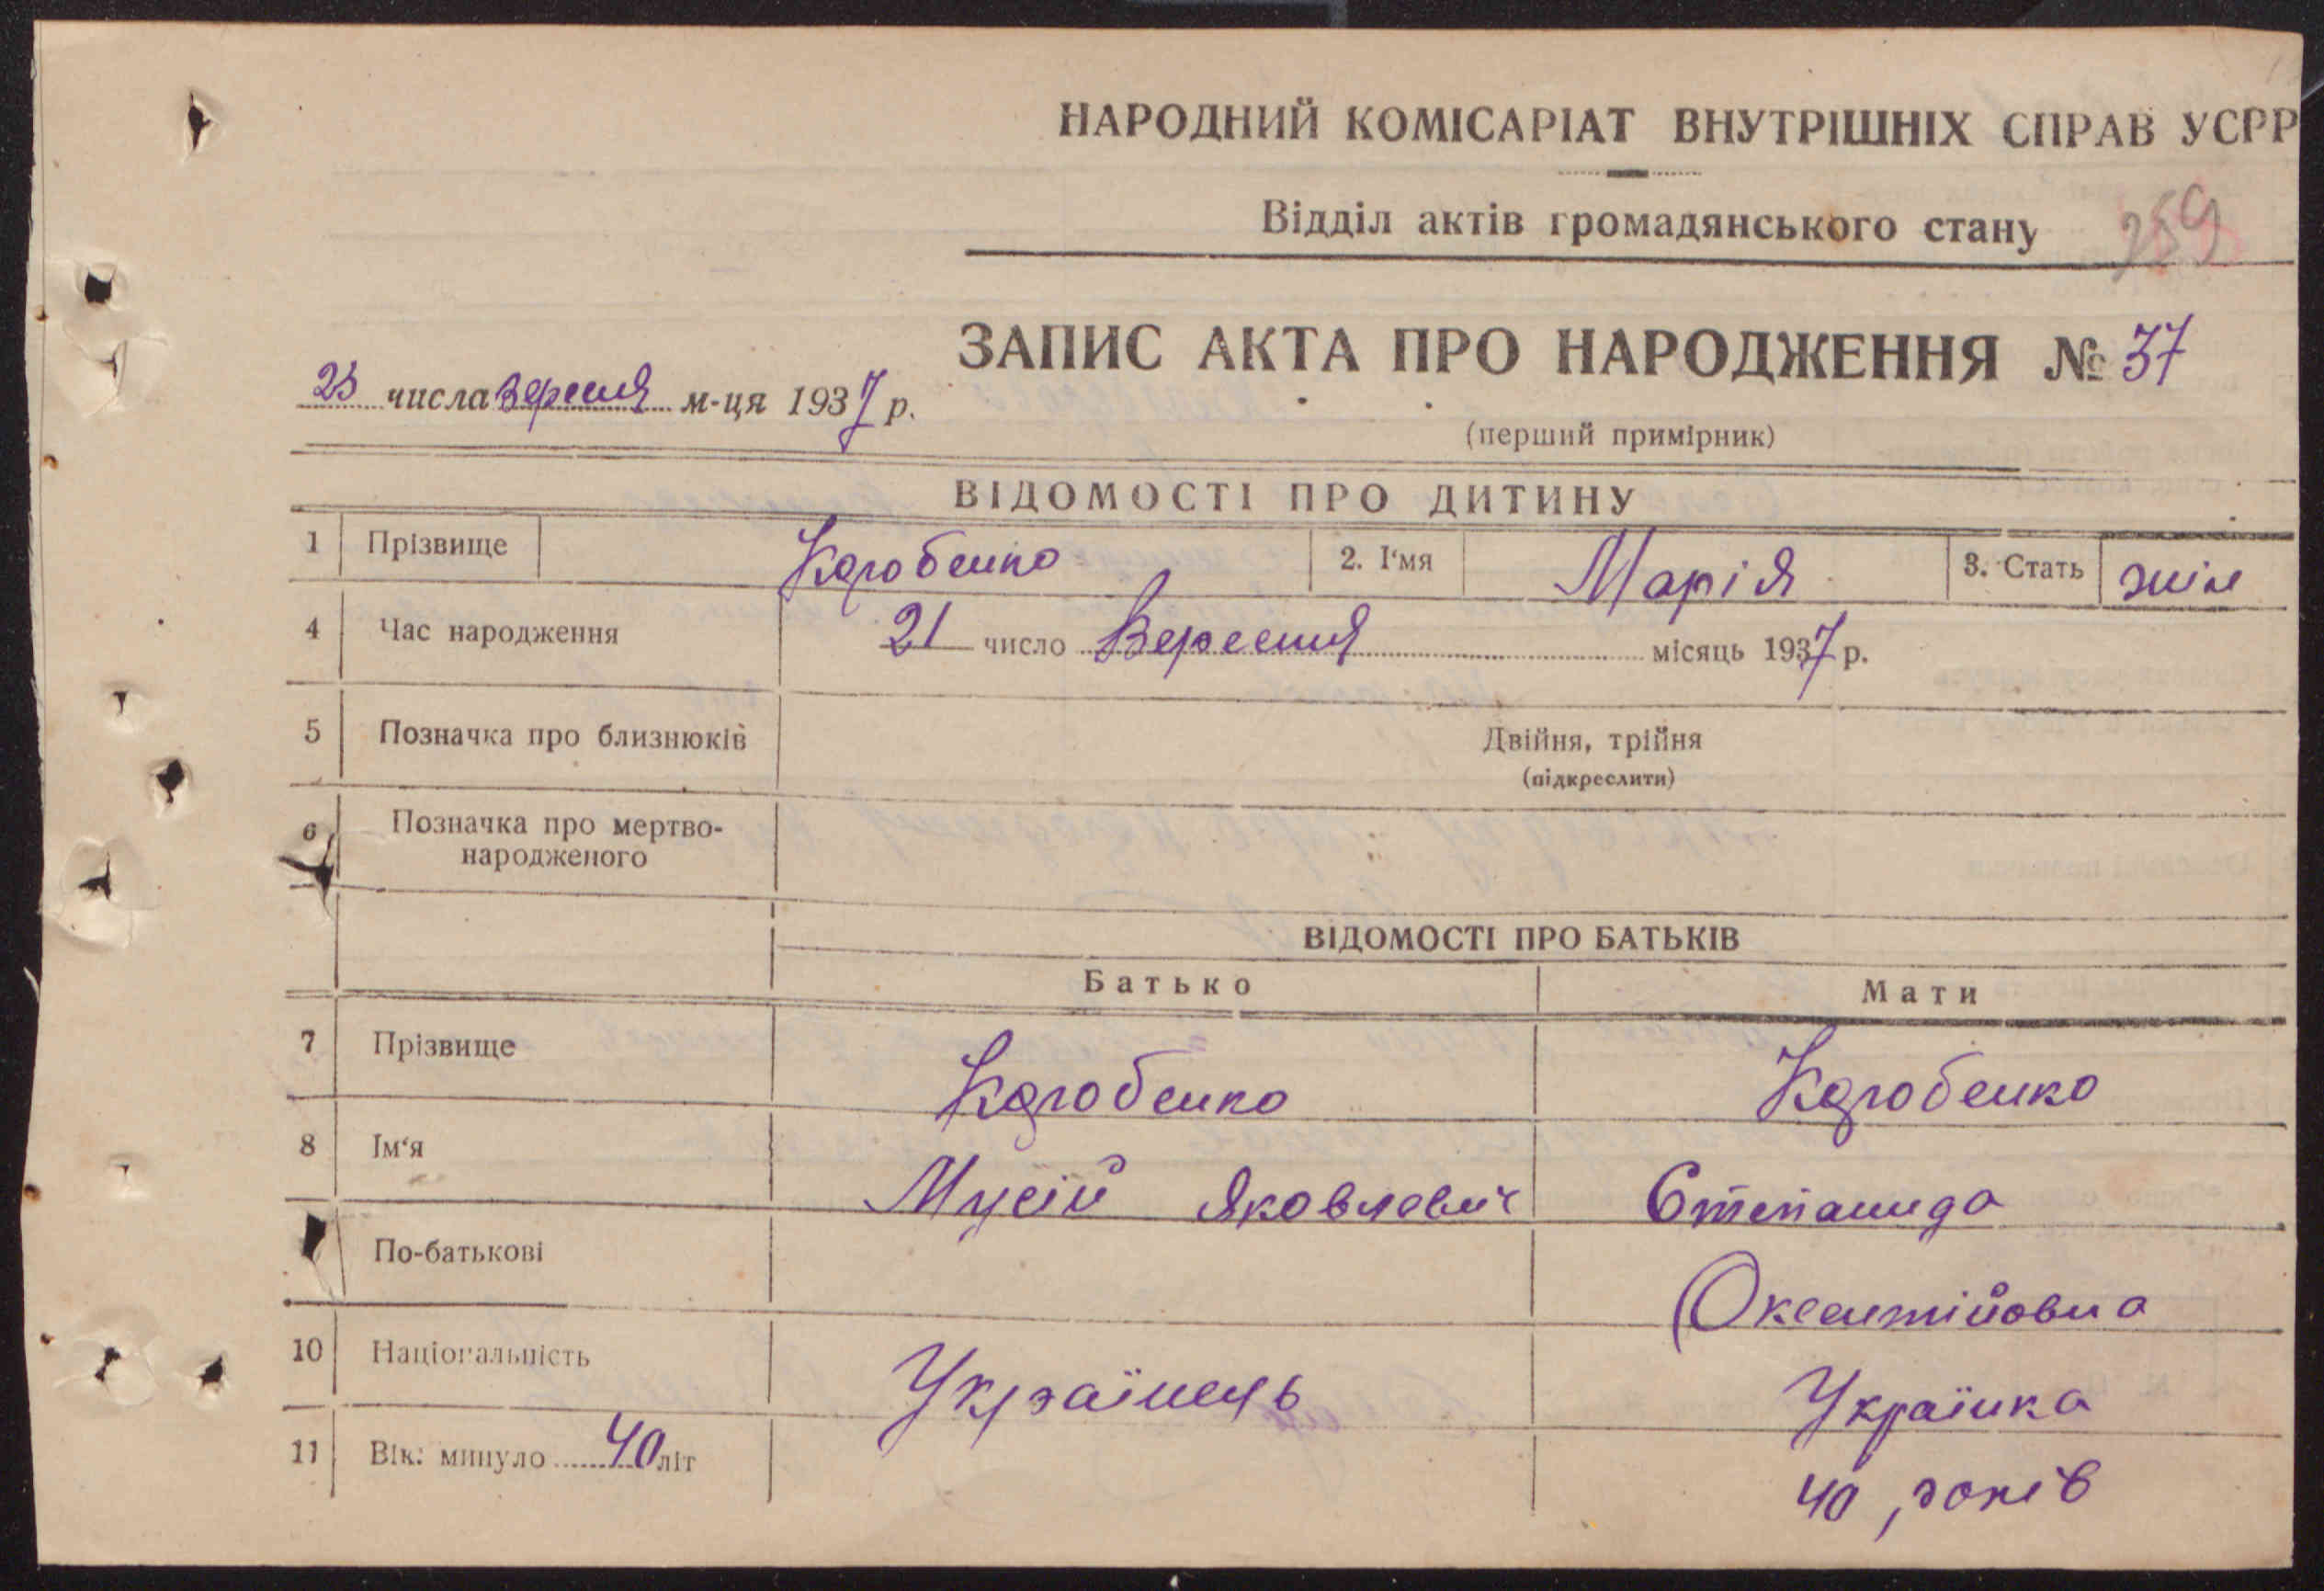 НАРОДНИЙ КОМІСАРІАТ ВНУТРІШНІХ СПРАВ УСРР
Відділ актів громадянського стану 259
ЗАПИС АКТА ПРО НАРОДЖЕННЯ № 37
23 числа Вересня м-ця 1937 р.
(перший примірник)
ВІДОМОСТІ ПРО ДИТИНУ
1 Прізвище Коробенко 2. І'мя Марія 3. Стать жін
4 Час народження 21 число Вересня місяць 1937 р.
5 Позначка про близнюків Двійня, трійня
(підкреслити)
6 Позначка про мертво-
народженого
ВІДОМОСТІ ПРО БАТЬКІВ
Батько Мати
7 Прізвище Коробенко Коробенко
8 Ім'я Мусій Яковлевич Степанида
По-батькові Оксентійовна
10 Національність Українець Українка
11 Вік: минуло 40 літ 40 років